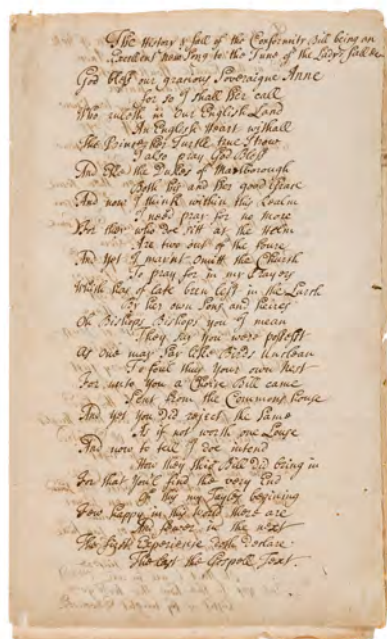 The History & fall of the Conformity Bill being an
Excellent new Song to the Tune of the Ladys fall &c
God bless our gracious Soveraigne Anne
for so I shall her call
Who ruleth in Our English Land
An English Heart withall
The Prince her Turtle true I trow
I also pray God Bless
And Eke the Dukes of Marlborough
Both his and her good Grace
And now I think within this Realm
I need pray for no more
For they who doe sitt at the Helm
Are two out of the foure
And yet I may'nt omitt the Church
To pray for in my Prayers
Which has of late been left in the Lurch
By her own Sons and heires
Oh Bishops, Bishops you I mean
They say you were possest
As One may say like Birds Unclean
To foul thus your own Nest
For unto you a Choice Bill came
Sent from the Commons house
And yet you did reject the Same
As if not worth one Louse
And now to tell I doe intend
How they this Bill did bring in
For that you'l find the very End
Of this my Tayles begining
Few happy in this World there are
And fewer in the next
The first Experience doth declare
The last the Gospell Text.